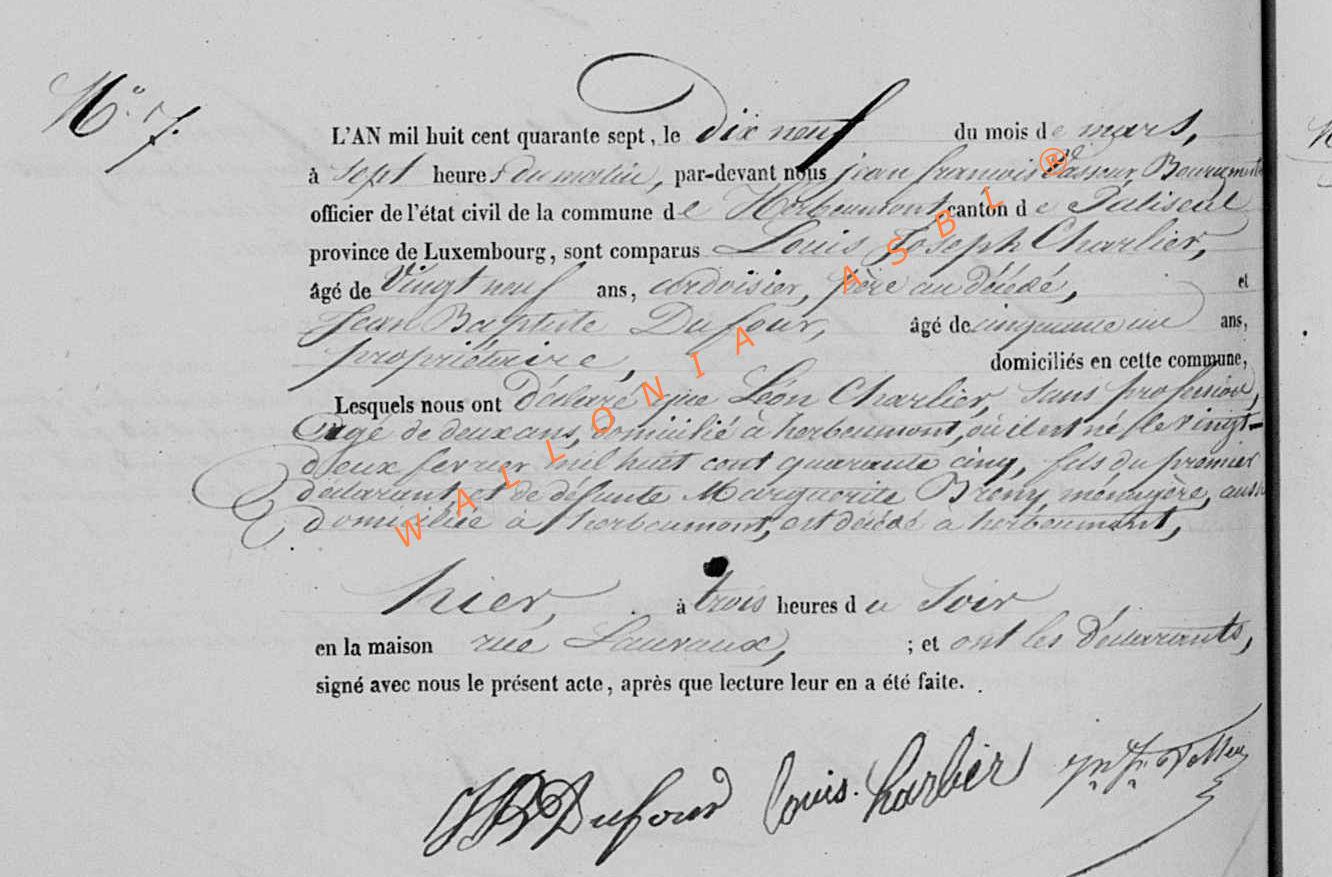 N° 7.
L'AN mil huit cent quarante sept, le Dix neuf du mois de mars,
à Sept heures du matin, par-devant nous jean françois Vasseur, Bourgmestre
officier de l'état civil de la commune de Herbeumont canton de Paliseul
province de Luxembourg, sont comparus Louis Joseph Charlier,
âgé de Vingt neuf ans, ardoisier, père au décédé, et
Jean Baptiste Dufour, âgé de cinquante un ans,
propriétaire, domiciliés en cette commune,
Lesquels nous ont Déclaré que Léon Charlier, sans profession,
Agé de deux ans, domicilié à herbeumont, où il est né le vingt-
deux fevrier mil huit cent quarante cinq, fils du premier
déclarant et de défunte Marguerite Brény ménagère, aussi
domiciliée à herbeumont, est décédé à herbeumont,
hier, à trois heures du Soir
en la maison rue Lauvaux, ; et ont les Déclarants,
signé avec nous le présent acte, après que lecture leur en a été faite.
JB Dufour Louis. Charlier
WALLONIA ASBL ®